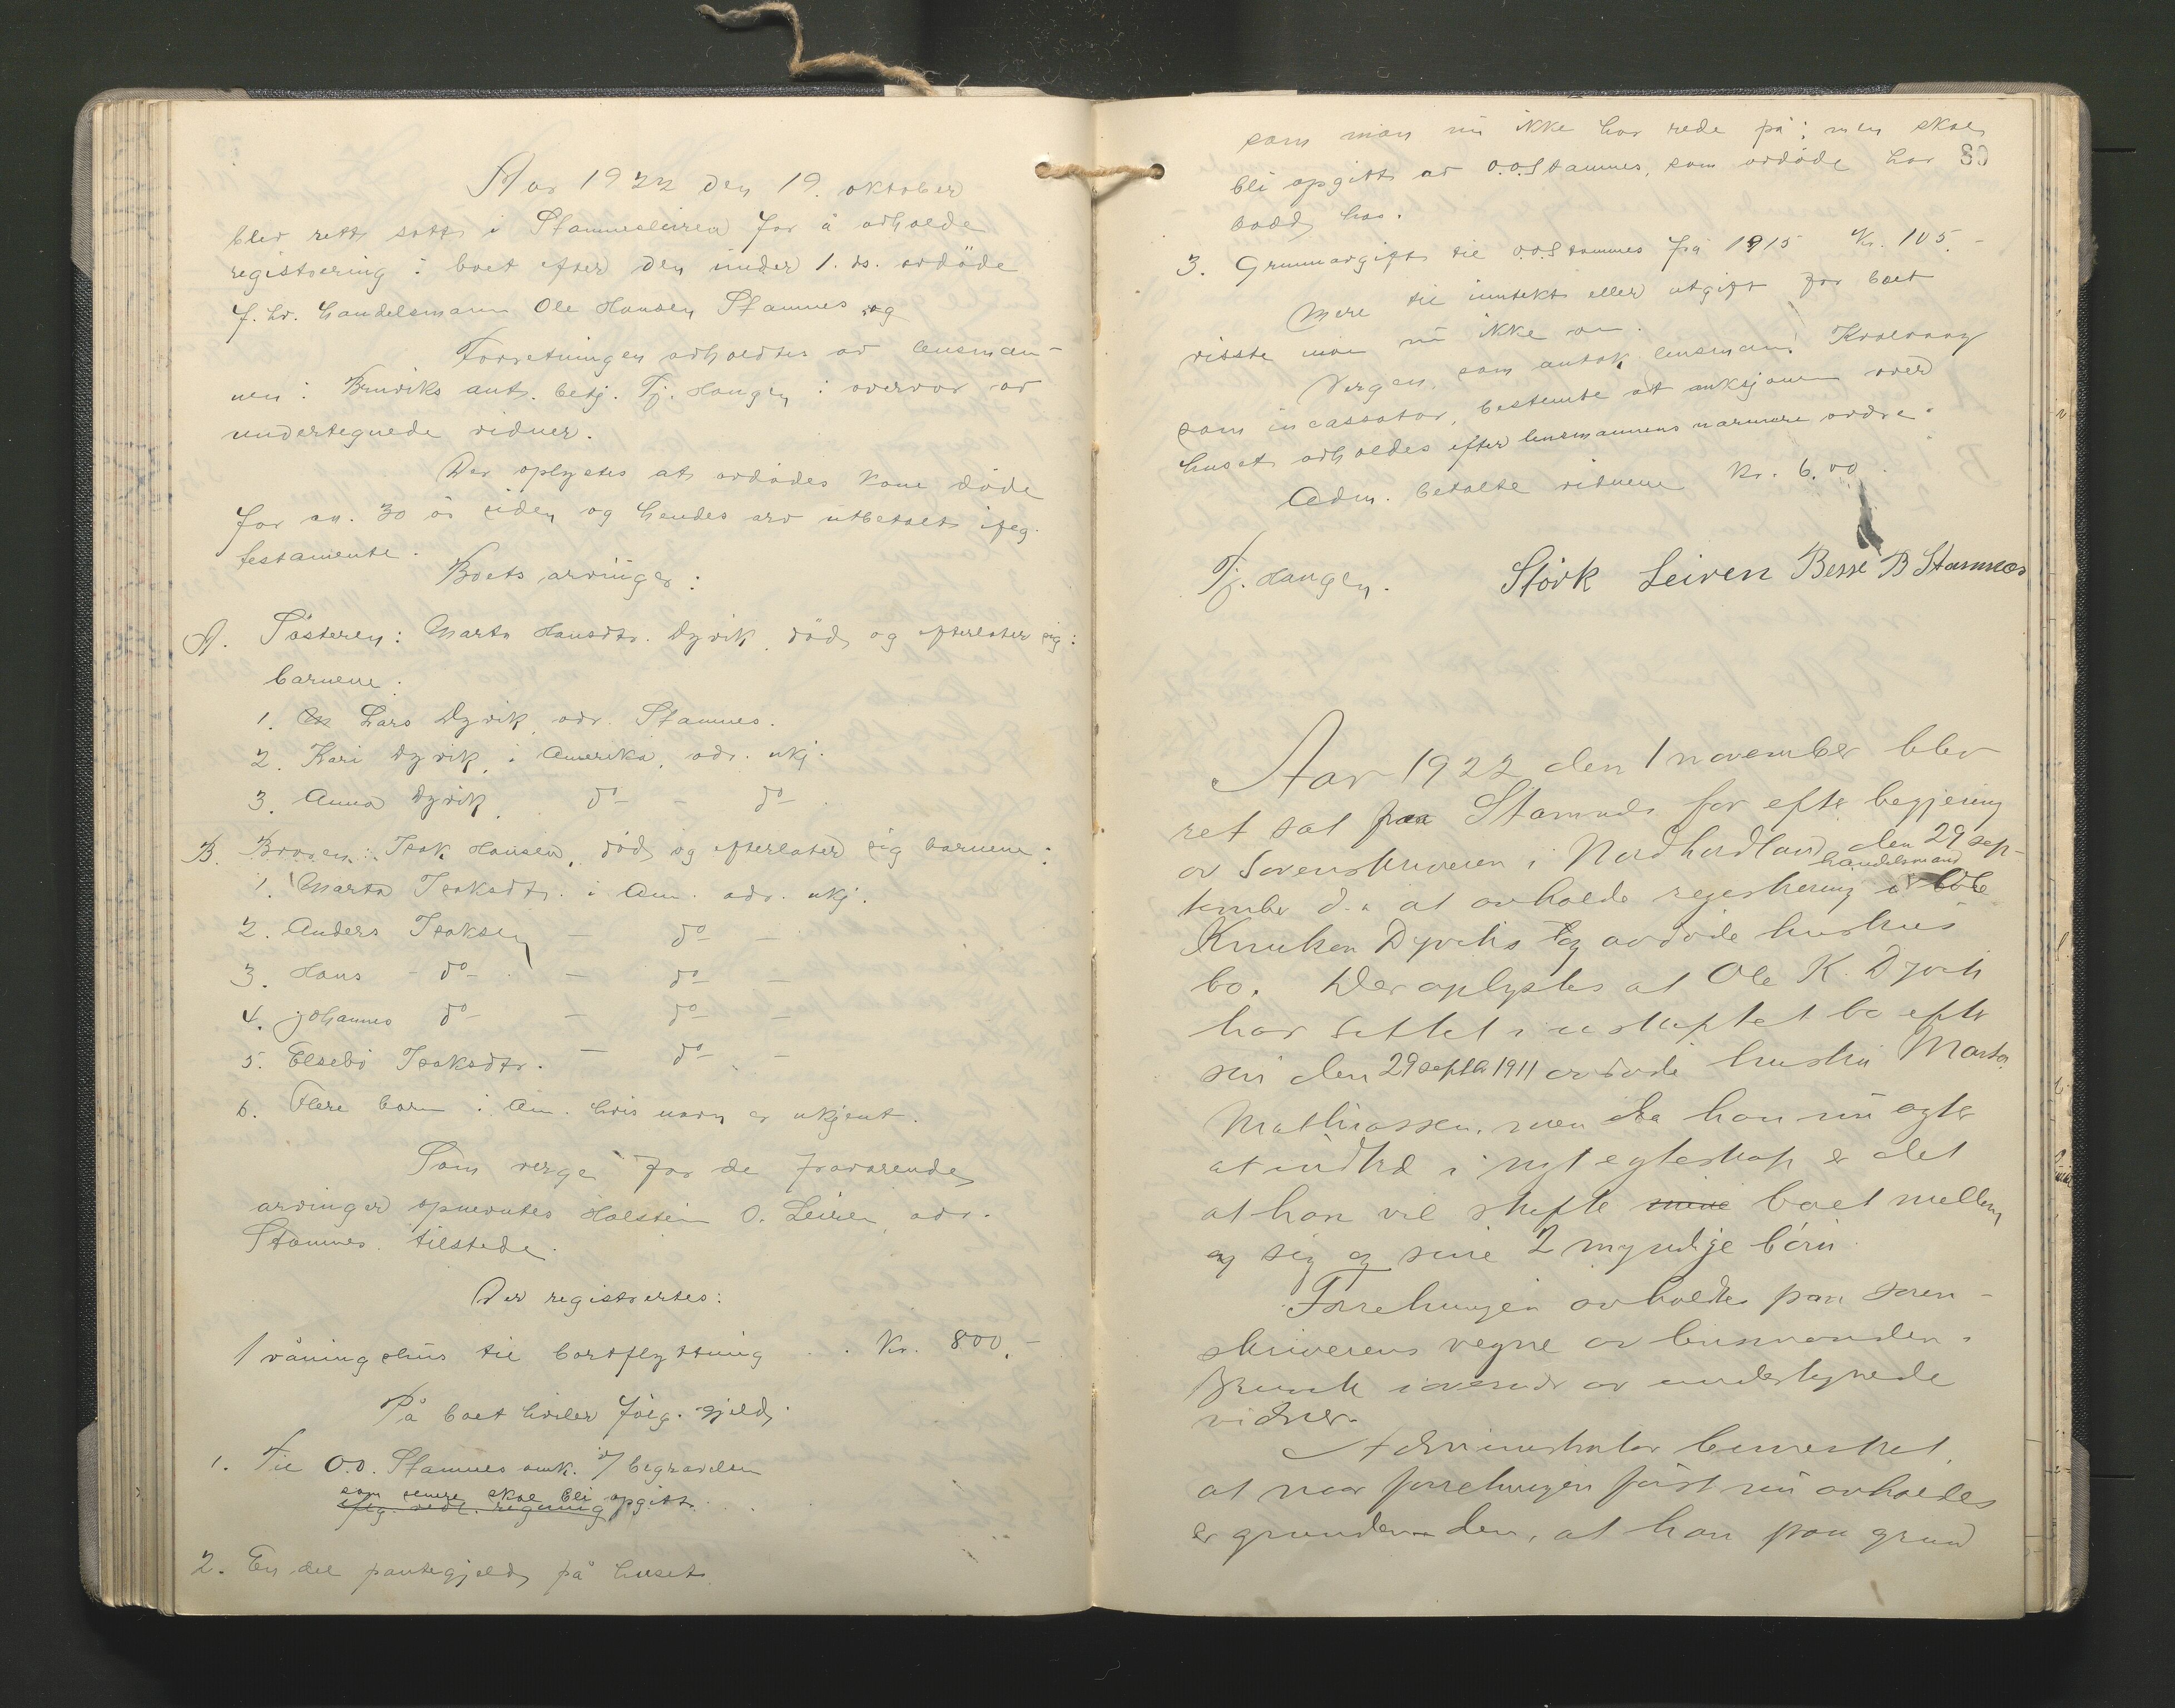 Aar 1922 den 19. oktober
blev rett satt i Stamnesleiren for å avholde
registrering i boet efter den under 1. ds. avdöde
f. hv. handelsmann Ole Hansen Stamnes og
Forretningen avholdtes av lensman-
nen i Bruviks aut. betj. Tj. Haugen i overvær av
undertegnede vidner.
Der oplystes at avdödes kone döde
for ca. 30 år siden og hendes arv utbetalt ifög.
testamente.
Boets arvinger:
A. Søsteren: Marta Hansdtr. Dyvik, död og efterlater sig:
barnene:
1. Lars Dyvik, adr. Stamnes.
2. Kari Dyvik, i Amerika, adr. ukj.
3. Anna Dyvik, do - do.
B. Broren: Isak Hansen, död og efterlater sig barnene:
1. Marta Isaksdtr. i Am. adr. ukj.
2. Anders Isaksen — do —
3. Hans - do - — do —
4. Johannes do - — do —
5. Elsebö Isaksdtr. — do —
6. Flere barn i Am. hvis navn er ukjent.
Som verge for de fraværende
arvinger opnevntes Halstein O. Leiren, adr.
Stamnes. tilstede.
Der registrertes:
1 våningshus til bortflyttning . . Kr. 800.-
På boet hviler fölg. gjeld:
1. Til O.O. Stamnes omk. v/ begravelsen
som senere skal bli opgitt.
ifög. vedl. regning
2. En del pantegjeld på huset
80
som man nu ikke har rede på; men skal
bli opgitt av O.O. Stamnes, som avdöde har
bodd hos.
3. Grunnavgift til O.O. Stamnes fra 1915 Kr. 105.-
Mere til inntekt eller utgift for boet
visste man nu ikke om.
Vergen, som antok lensmann
som incassator, bestemte at auksjonen over
huset avholdes efter lensmannens nærmere ordre.
Adm. betalte vidnene Kr. 6.00.
Tj. Haugen. Störk Leiren Besse B Stamnes
Aar 1922 den 1 november blev
ret sat paa Stamnes for efter begjering
av Sorenskriveren i Nordhordland den 29 sep-
tember d.a. at avholde registrering i handelsmand Ole
Knutsen Dyviks og avdøde hustrus
bo. Der oplystes at Ole K. Dyvik
har sittet i uskiftet bo efter
sin den 29 septbr 1911 avdøde hustru Marta
Mathiassen, men da han nu agter
at indtræ i nyt egteskap er det
at han vil skifte mine boet mellem
og sig og sine 2 myndige børn.
Forretningen avholdtes paa soren-
skriverens vegne av lensmanden i
Bruvik i overvær av undertegnede
vidner.
Administrator bemerket,
at naar forretningen først nu avholdes
er grunden den, at han paa grund